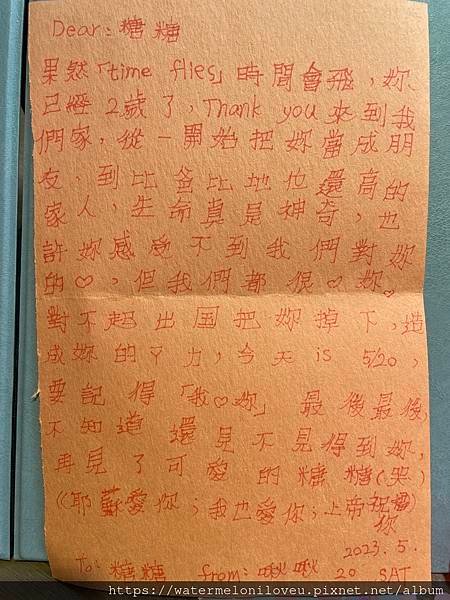 Dear: 糖糖
果然「time flies」時間會飛，妳
已經2歲了，Thank you來到我
們家，從一開始把妳當成朋
友，到比爸比地位還高的
家人，生命真是神奇，也
許妳感受不到我們對妳
的♡，但我們都很♡妳。
對不起出国把妳掉下，造
成妳的ㄚ力，今天is 5/20，
要記得「我♡妳」最後最後，
不知道還見不見得到妳，
再見了可愛的糖糖(哭)
(耶蘇愛你；我也愛你；上帝祝
你)
2023.5.
To: 糖糖 from: 啾啾 20 SAT
https://watermeloniloveu.pixnet.net/album